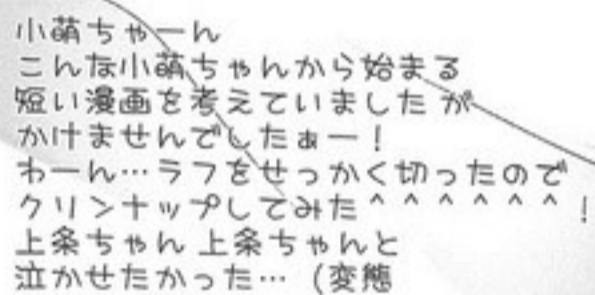 小萌ちゃーん
こんな小萌ちゃんから始まる
短い漫画を考えていました が
かけませんでしたぁー！
わーん…ラフをせっかく切ったので
クリンナップしてみた＾＾＾＾＾＾！
上条ちゃん 上条ちゃんと
泣かせたかった…（変態